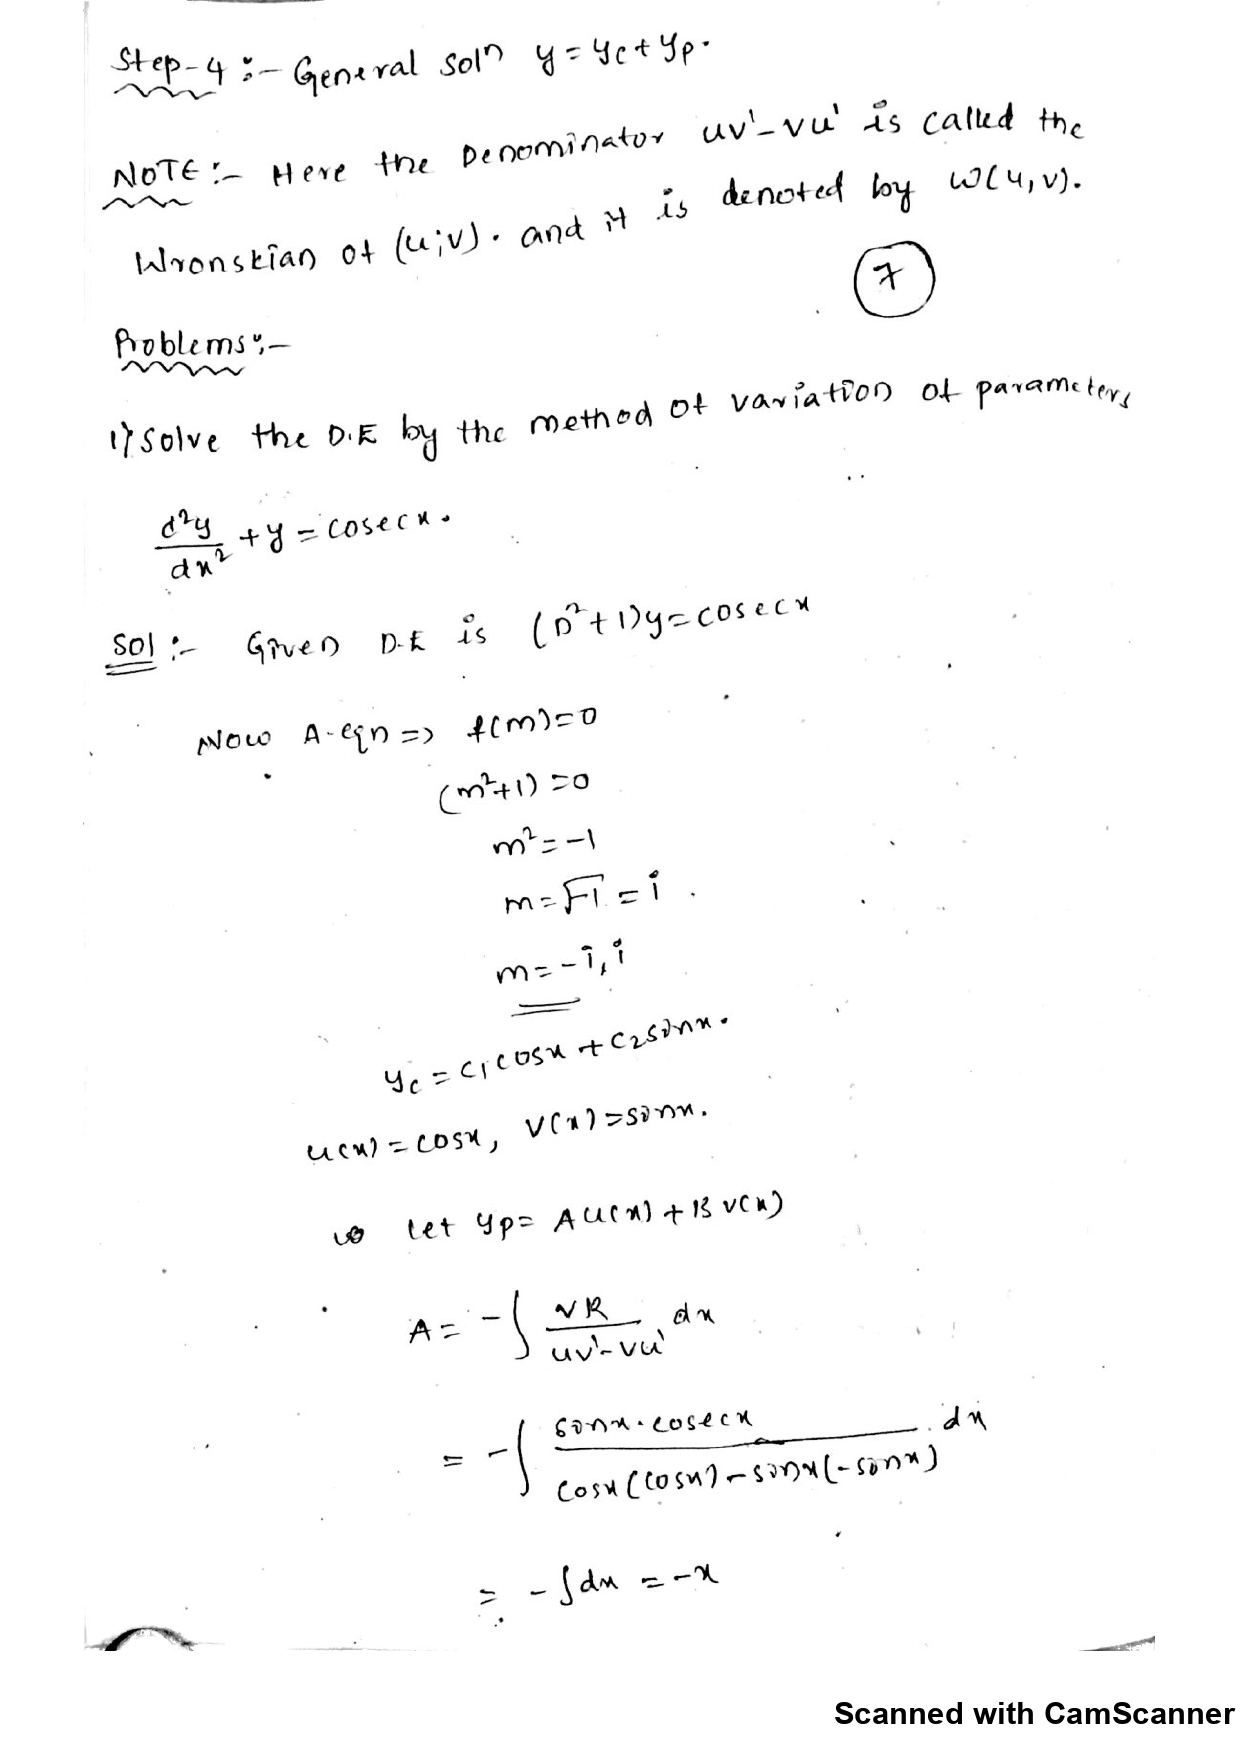 Step-4 :- General Solⁿ y = yc + yp.
NOTE :- Here the Denominator uv' - vu' is called the
Wronskian of (u,v). and it is denoted by W(u,v).
7
Problems :-
1) Solve the D.E by the method of variation of parameters
d²y/dx² + y = cosecx.
Sol :- Given D.E is (D²+1)y = cosecx
Now A-eqn => f(m)=0
(m²+1) = 0
m² = -1
m = √-1 = i
m = -i, i
yc = c₁cosx + c₂sinx.
u(x) = cosx, v(x) = sinx.
let yp = A u(x) + B v(x)
A = -∫ VR/(uv'-vu') dx
= -∫ sinx.cosecx/(cosx(cosx) - sinx(-sinx)) dx
= -∫dx = -x
Scanned with CamScanner